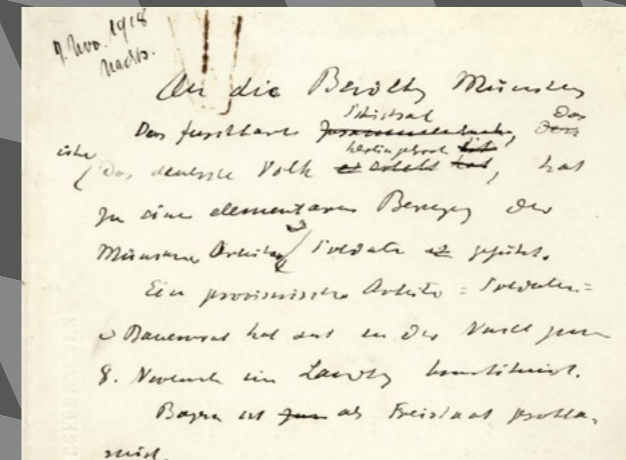 7. Nov. 1918
Nachts.
An die Bevölkg Münchens
Schicksal das
Das furchtbare Zusammenbruch, das
hereingebrochen ist
Das deutsche Volk er erlebt hat, hat
zu einer elementaren Bewegg der
Münchner Arbeiter Soldaten geführt.
Ein provisorischer Arbeiter = Soldaten =
u Bauernrat hat sich in der Nacht zum
8. November im Landtg konstituiert.
Bayern ist zum als Freistaat prokla-
miert.